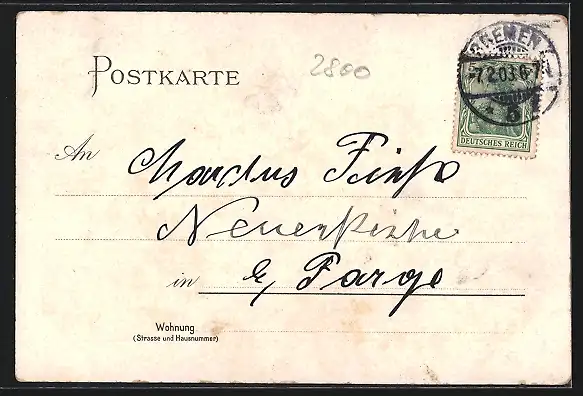 BREMEN
5
7.2.03 6-7
5
DEUTSCHES REICH
POSTKARTE
2800
An Mardus Finke
Neuenkirche
in b/ Farge
Wohnung
(Strasse und Hausnummer)